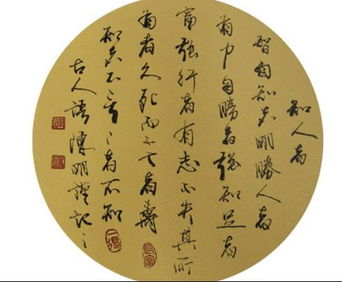 知人者
智自知者明勝人者
有力自勝者強知足者
富強行者有志不失其所
者久死而不亡者壽
知者不言言者不知
古人語陳明